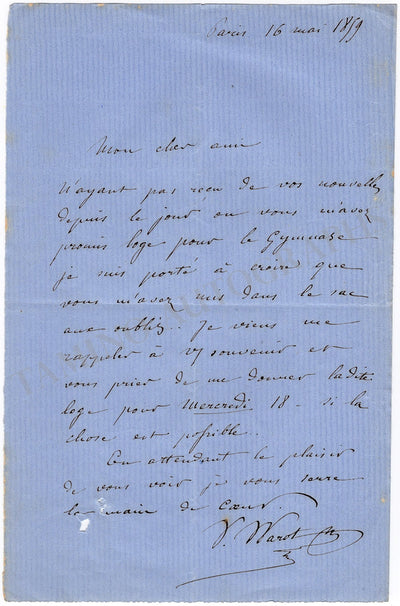 Paris 16 mai 1859
Mon cher ami
N'ayant pas reçu de vos nouvelles
depuis le jour où vous m'avez
promis loge pour le Gymnase
je suis porté à croire que
vous m'avez mis dans le sac
aux oubliz.. Je viens me
rappeler à vj souvenir et
vous prier de me donner ladite
loge pour Mercredi 18 - si la
chose est possible.
En attendant le plaisir
de vous voir je vous serre
la main de cœur.
V. Warot